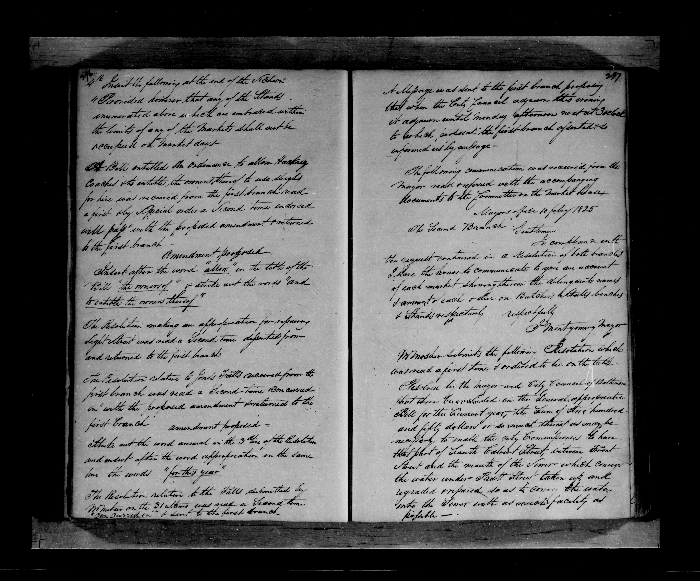 4th Insert the following at the end of the Section
"Provided however that any of the Stands
enumerated above which are embraced within
the limits of any of the Markets shall not be
occupied on Market days
A Bill entitled the Ordinance to allow Hackney
Coaches &c
for hire was received from the first branch, read
a first & by Special order a Second time endorsed
"will pass" with the proposed amendment & returned
to the first branch
Amendment proposed
Insert after the word "allow" in the title of the
Bill "the owners of" & strike out the words "and
to entitle the owners thereof"
The Resolution making an appropriation for repairing
Light Street was read a Second time dissented from
and returned to the first branch
The Resolution relative to Jones Falls received from the
first branch was read a Second time Concurred
in with the proposed amendment & returned to the
first branch amendment proposed -
Strike out the word annual in the 3rd line of the Resolution
and insert after the word appropriation in the same
line the words "for this year"
The Resolution relative to the Falls submitted by
Mr Mosher on the 31 ultimo was read a Second time
"Concurred in" & sent to the first branch
287
A Message was sent to the first branch proposing
that when the City Council adjourn this evening
it adjourn until monday afternoon next at 3 oclock
to which, in substance the first branch assented &
informed us by message -
The following communication was received from the
Mayor read & referred with the accompanying
documents to the Committee on the Market House
Mayors office 10 feby 1825
The Second Branch
Gentlemen
In compliance with
the request contained in a Resolution of both branches
I have the honor to communicate to you an account
of each market shewing therein the delinquents names
& amount & each & other on Butchers, & Stalls, benches
& Stands respectively respectfully
Jno Montgomery Mayor
Mr Mosher submits the following Resolution which
was read a first time & ordered to lie on the table
Resolved by the Mayor and City Council of Baltimore
that there be included in the General appropriation
Bill for the present year, the Sum of five hundred
and fifty dollars or so much thereof as may be
necessary to enable the City Commissioners to have
that part of South Calvert Street, between Pratt
Street and the mouth of the Sewer which conveys
the water under Pratt Street taken up and
regraded & repaved so as to convey the water
into the Sewer with as much facility as
possible —